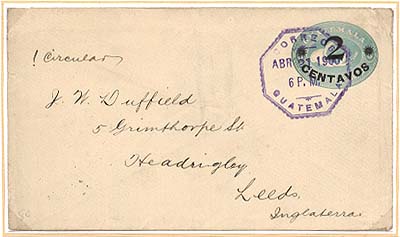 ! Circular
CORREOS
2
CENTAVOS
GUATEMALA
ABR 21 1900
6 P.M.
GUATEMALA
J. W. Duffield
5 Grimthorpe St
Headingley
Leeds
Inglaterra